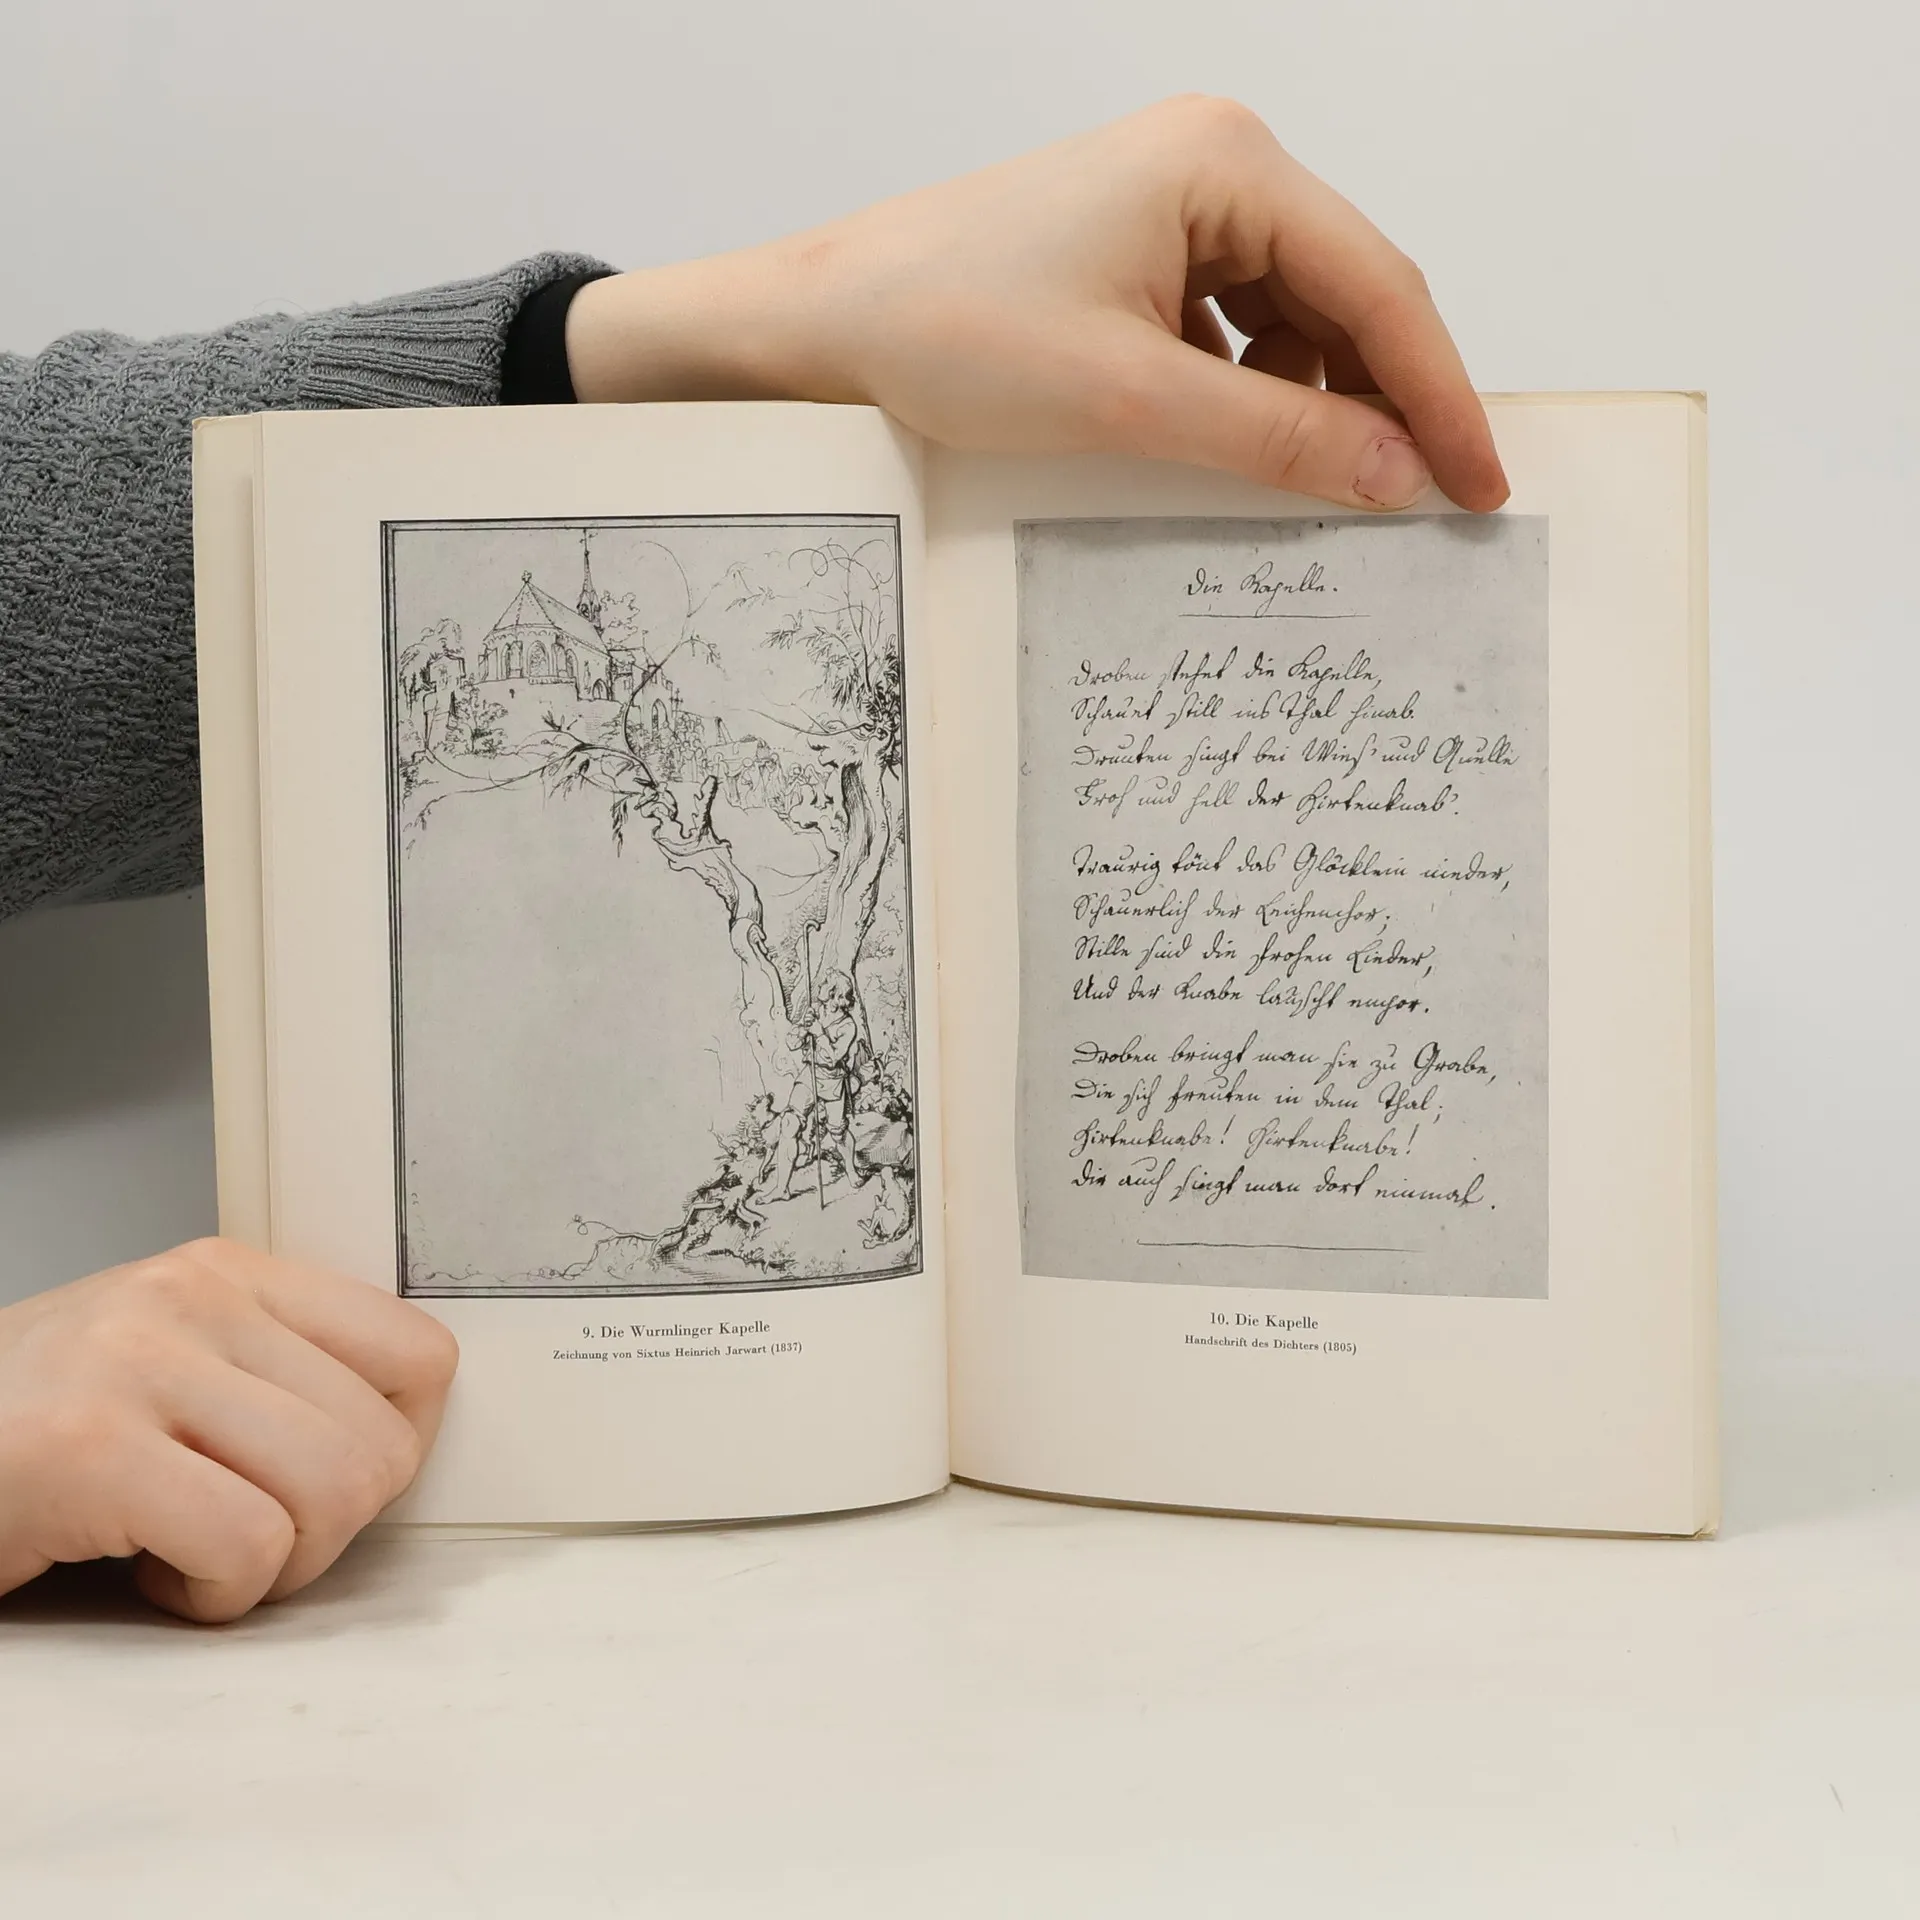 9. Die Wurmlinger Kapelle
Zeichnung von Sixtus Heinrich Jarwart (1837)
Die Kapelle.
Droben stehet die Kapelle,
Schauet still ins Thal hinab.
Drunten singt bei Wies' und Quelle
Froh und hell der Hirtenknab'.
Traurig tönt das Glöcklein nieder,
Schauerlich der Leichenchor;
Stille sind die frohen Lieder,
Und der Knabe lauscht empor.
Droben bringt man sie zu Grabe,
Die sich freuten in dem Thal;
Hirtenknabe! Hirtenknabe!
Dir auch singt man dort einmal.
10. Die Kapelle
Handschrift des Dichters (1805)